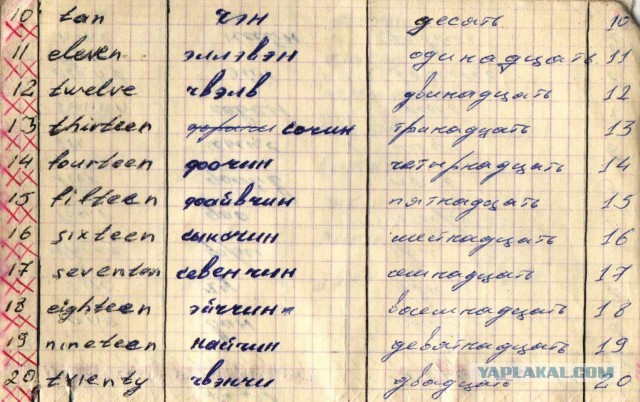 10 tan чэн десять 10
11 eleven эллэвэн одинадцать 11
12 twelve чвэлв двинадцать 12
13 thirteen сочин тринадцать 13
14 fourteen фоочин четырнадцать 14
15 fifteen файвчин пятнадцать 15
16 sixteen сыксчин шейнадцать 16
17 seventen севенчин семнадцать 17
18 eighteen эйччин восемнадцать 18
19 nineteen найчин девятнадцать 19
20 twenty чвэнчи двадцать 20
YAPLAKAL.COM